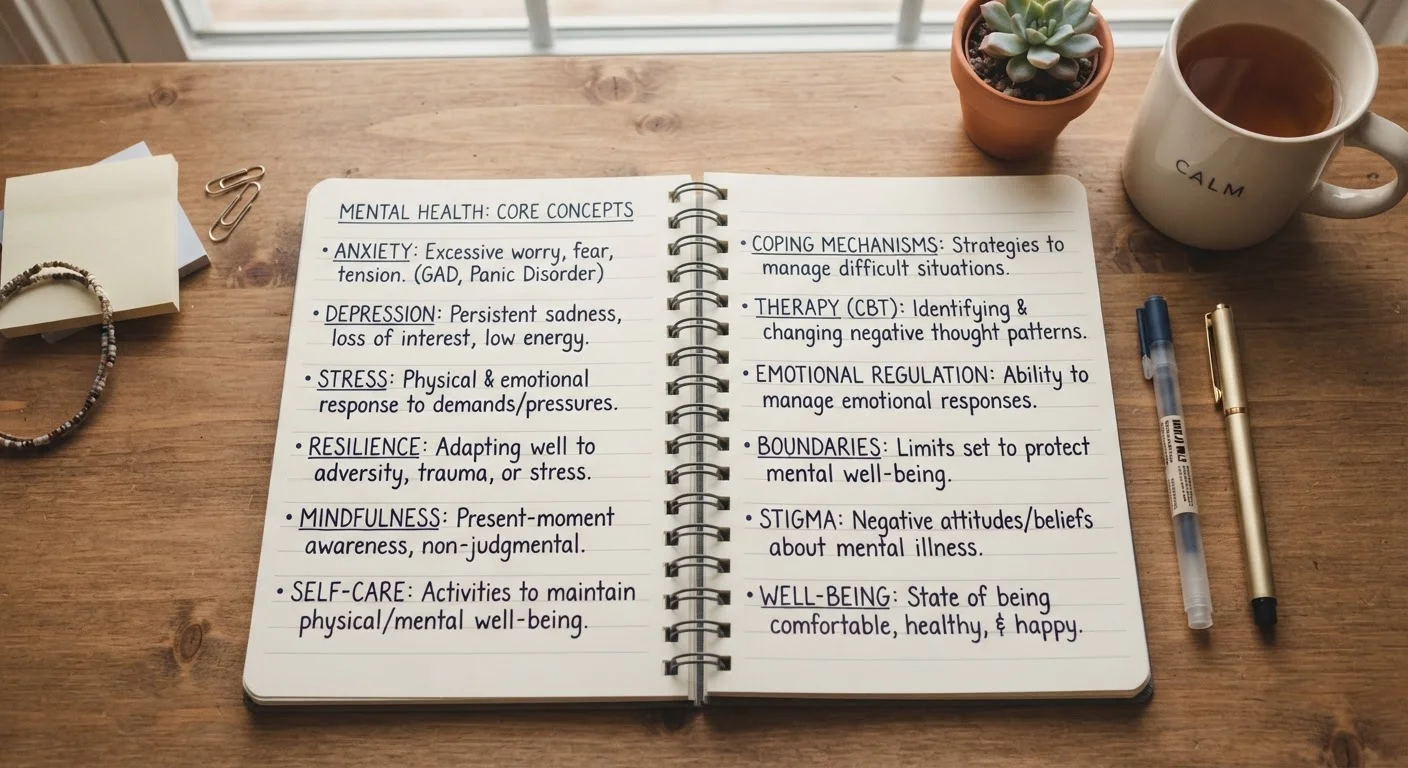 MENTAL HEALTH: CORE CONCEPTS
• ANXIETY: Excessive worry, fear,
tension. (GAD, Panic Disorder)
• DEPRESSION: Persistent sadness,
loss of interest, low energy.
• STRESS: Physical & emotional
response to demands/pressures.
• RESILIENCE: Adapting well to
adversity, trauma, or stress.
• MINDFULNESS: Present-moment
awareness, non-judgmental.
• SELF-CARE: Activities to maintain
physical/mental well-being.
• COPING MECHANISMS: Strategies to
manage difficult situations.
• THERAPY (CBT): Identifying &
changing negative thought patterns.
• EMOTIONAL REGULATION: Ability to
manage emotional responses.
• BOUNDARIES: Limits set to protect
mental well-being.
• STIGMA: Negative attitudes/beliefs
about mental illness.
• WELL-BEING: State of being
comfortable, healthy, & happy.
CALM